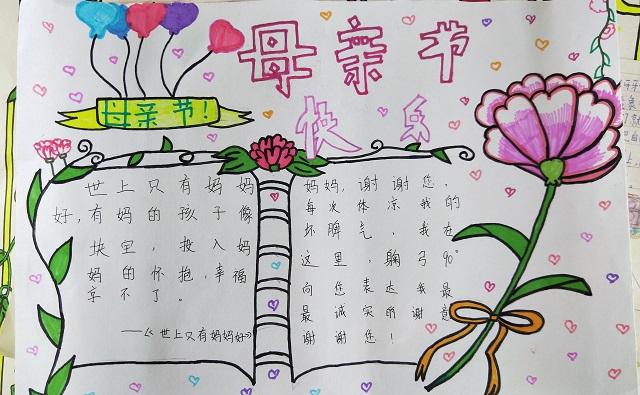 母亲节
快乐
母亲节!
世上只有妈妈
好，有妈的孩子像
块宝，投入妈
妈的怀抱，幸福
享不了。
——《世上只有妈妈好》
妈妈，谢谢您，
每次体凉我的
坏脾气，我在
这里，鞠弓90°
向您表达我最
最诚实的谢意
谢谢您！